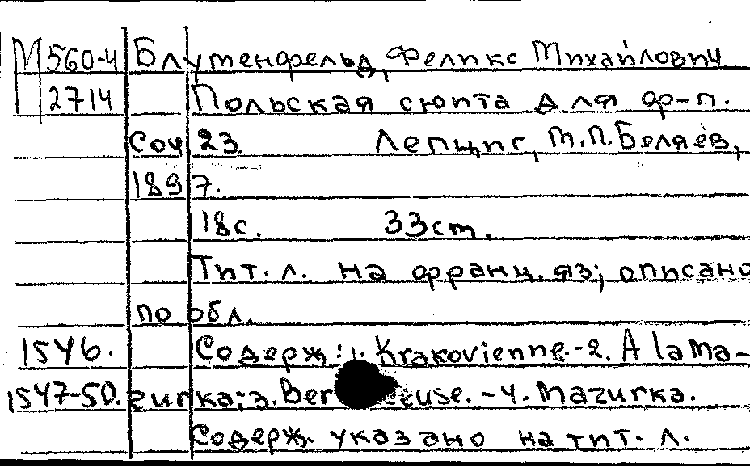 М 560-4 Блуменфельд, Феликс Михайлович
2714 Польская сюита для ф-п.
Соч 23. Лепциг, М.П.Беляев,
1897.
18с. 33cm.
Тит. л. на франц. яз; описано
по обл.
1546. Содерж: 1. Krakovienne.-2. A la Ma-
1547-50. zurka; 3. Ber euse. -4. Mazurka.
Содерж. указано на тит. л.